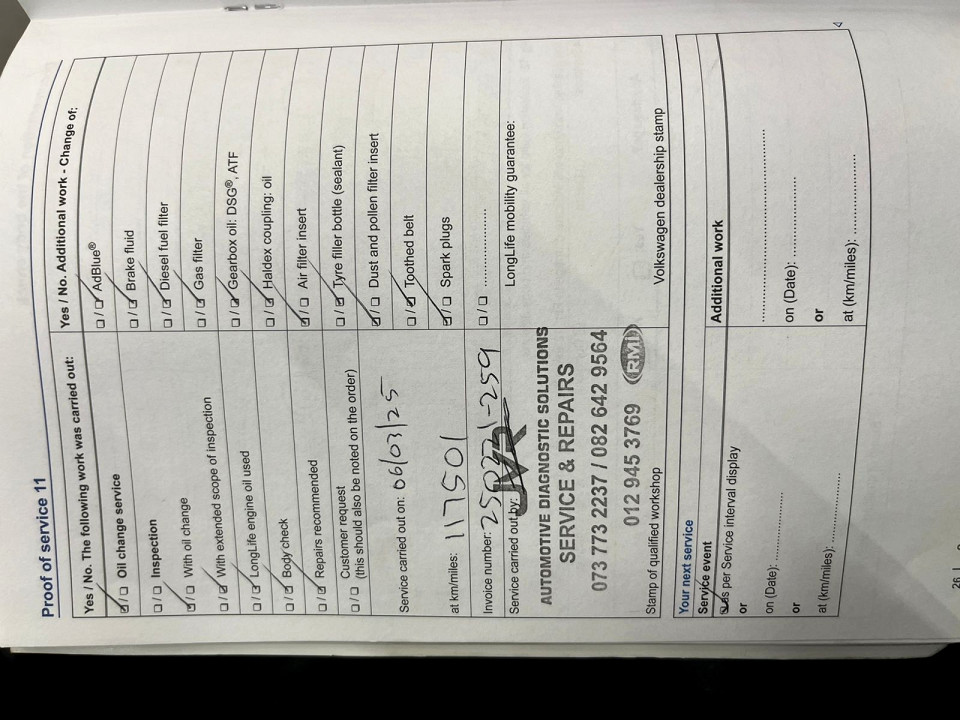 Proof of service 11
Yes / No. The following work was carried out:
☑ / ☐ Oil change service
☐ / ☐ Inspection
☑ / ☐ With oil change
☐ / ☑ With extended scope of inspection
☐ / ☑ LongLife engine oil used
☐ / ☑ Body check
☐ / ☑ Repairs recommended
☐ / ☐ Customer request
(this should also be noted on the order)
Service carried out on: 06/03/25
at km/miles: 117501
Invoice number:
Service carried out by:
AUTOMOTIVE DIAGNOSTIC SOLUTIONS
SERVICE & REPAIRS
073 773 2237 / 082 642 9564
012 945 3769 RMI
Stamp of qualified workshop
Yes / No. Additional work - Change of:
☐ / ☑ AdBlue®
☐ / ☑ Brake fluid
☐ / ☑ Diesel fuel filter
☐ / ☑ Gas filter
☐ / ☑ Gearbox oil: DSG®, ATF
☐ / ☑ Haldex coupling: oil
☑ / ☐ Air filter insert
☐ / ☑ Tyre filler bottle (sealant)
☑ / ☐ Dust and pollen filter insert
☐ / ☑ Toothed belt
☑ / ☐ Spark plugs
☐ / ☐ ....................
LongLife mobility guarantee:
Volkswagen dealership stamp
Your next service
Service event
☑ as per Service interval display
or
on (Date): ....................
or
at (km/miles): ....................
Additional work
....................
on (Date): ....................
or
at (km/miles): ....................
26